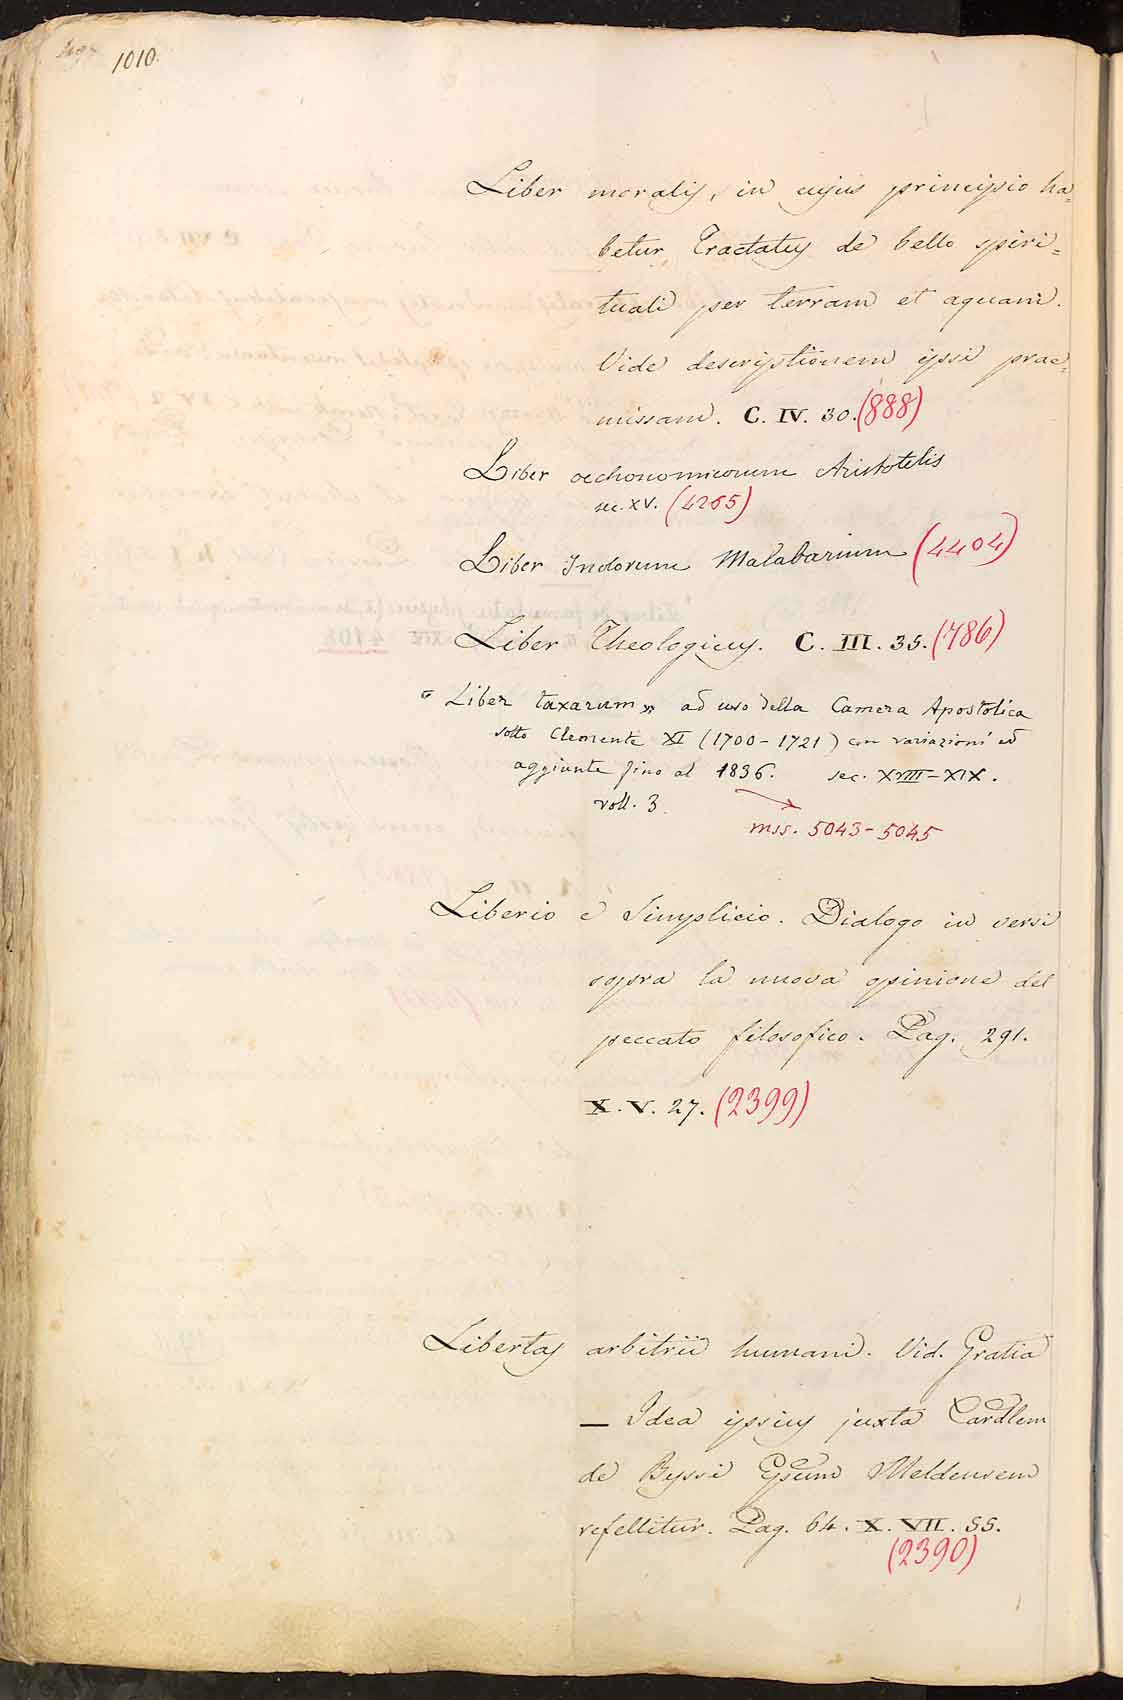 1010.
Liber moralis, in cujus principio ha=
betur Tractatus de bello spiri=
tuali per terram et aquam.
Vide descriptionem ipsi prae=
missam. C. IV. 30. (888)
Liber oechonomicorum Aristotelis
sec. XV. (4265)
Liber Indorum Malabarium (4404)
Liber Theologicus. C. III. 35. (786)
"Liber taxarum" ad uso della Camera Apostolica
sotto Clemente XI (1700-1721) con variazioni ed
aggiunte fino al 1836. sec. XVIII-XIX.
voll. 3.
mss. 5043-5045
Liberio e Simplicio. Dialogo in versi
sopra la nuova opinione del
peccato filosofico. Pag. 291.
X. V. 27. (2399)
Libertas arbitrii humani. Vid. Gratia
— Idea ipsius juxta Cardlem
de Byssi Epum Meldensem
refellitur. Pag. 64. X. VII. 55.
(2390)